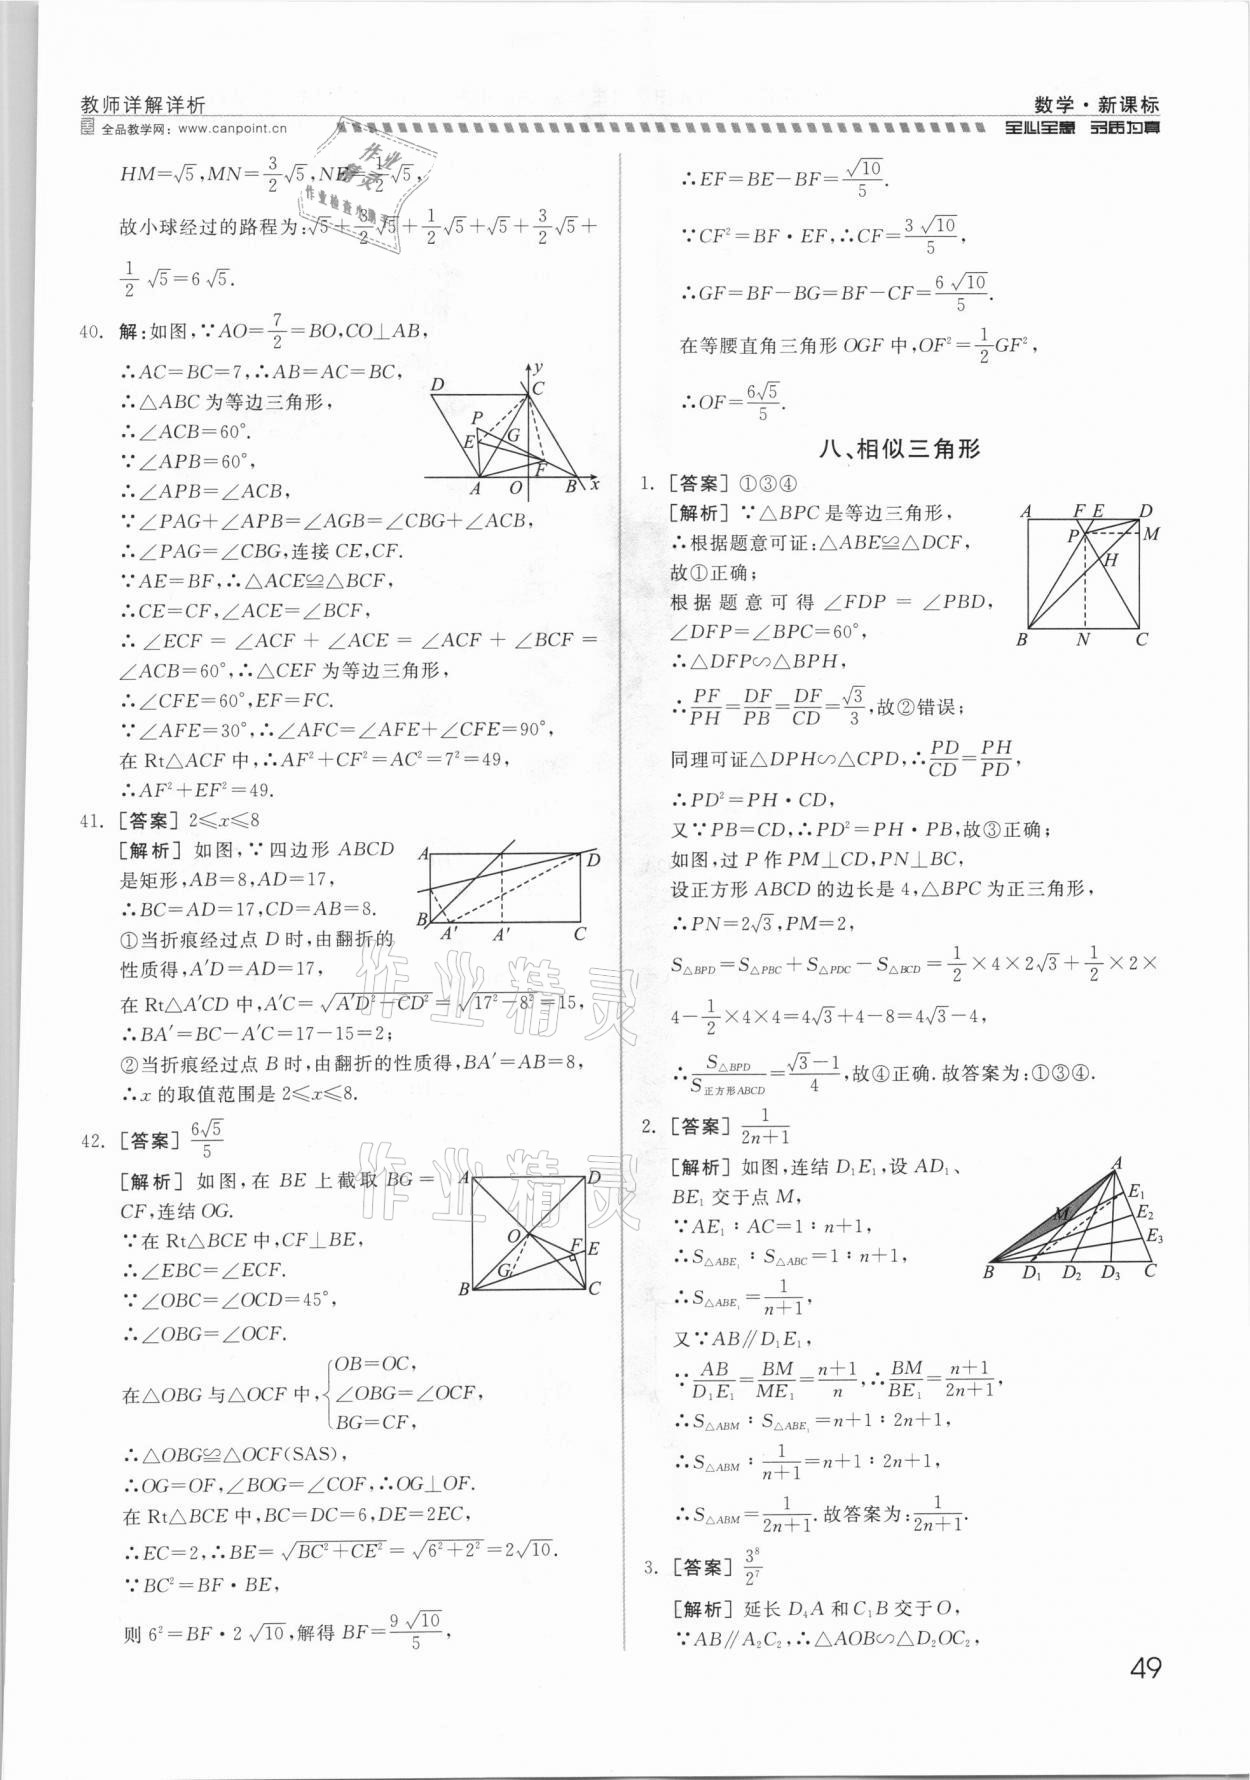 教师详解详析
全品教学网：www.canpoint.cn
数学·新课标
全心全意 务质为真
HM=√5,MN=3/2√5,NE=1/2√5,
故小球经过的路程为:√5+3/2√5+1/2√5+√5+3/2√5+
1/2√5=6√5.
40. 解:如图,∵AO=7/2=BO,CO⊥AB,
∴AC=BC=7,∴AB=AC=BC,
∴△ABC为等边三角形,
∴∠ACB=60°.
∵∠APB=60°,
∴∠APB=∠ACB,
D y C P G E F A O B x
∵∠PAG+∠APB=∠AGB=∠CBG+∠ACB,
∴∠PAG=∠CBG,连接CE,CF.
∵AE=BF,∴△ACE≌△BCF,
∴CE=CF,∠ACE=∠BCF,
∴∠ECF=∠ACF+∠ACE=∠ACF+∠BCF=
∠ACB=60°,∴△CEF为等边三角形,
∴∠CFE=60°,EF=FC.
∵∠AFE=30°,∴∠AFC=∠AFE+∠CFE=90°,
在Rt△ACF中,∴AF²+CF²=AC²=7²=49,
∴AF²+EF²=49.
41. [答案]2≤x≤8
[解析]如图,∵四边形ABCD
是矩形,AB=8,AD=17,
∴BC=AD=17,CD=AB=8.
①当折痕经过点D时,由翻折的
性质得,A′D=AD=17,
A D B A′ A′ C
在Rt△A′CD中,A′C=√(A′D²−CD²)=√(17²−8²)=15,
∴BA′=BC−A′C=17−15=2;
②当折痕经过点B时,由翻折的性质得,BA′=AB=8,
∴x的取值范围是2≤x≤8.
42. [答案]6√5/5
[解析]如图,在BE上截取BG=
CF,连结OG.
∵在Rt△BCE中,CF⊥BE,
∴∠EBC=∠ECF.
∵∠OBC=∠OCD=45°,
∴∠OBG=∠OCF.
A D O F E G B C
在△OBG与△OCF中,{OB=OC,
∠OBG=∠OCF,
BG=CF,
∴△OBG≌△OCF(SAS),
∴OG=OF,∠BOG=∠COF,∴OG⊥OF.
在Rt△BCE中,BC=DC=6,DE=2EC,
∴EC=2,∴BE=√(BC²+CE²)=√(6²+2²)=2√10.
∵BC²=BF·BE,
则6²=BF·2√10,解得BF=9√10/5,
∴EF=BE−BF=√10/5.
∵CF²=BF·EF,∴CF=3√10/5,
∴GF=BF−BG=BF−CF=6√10/5.
在等腰直角三角形OGF中,OF²=1/2GF²,
∴OF=6√5/5.
八、相似三角形
1. [答案]①③④
[解析]∵△BPC是等边三角形,
∴根据题意可证:△ABE≌△DCF,
故①正确;
根据题意可得∠FDP=∠PBD,
∠DFP=∠BPC=60°,
∴△DFP∽△BPH,
A F E D P M H B N C
∴PF/PH=DF/PB=DF/CD=√3/3,故②错误;
同理可证△DPH∽△CPD,∴PD/CD=PH/PD,
∴PD²=PH·CD,
又∵PB=CD,∴PD²=PH·PB,故③正确;
如图,过P作PM⊥CD,PN⊥BC,
设正方形ABCD的边长是4,△BPC为正三角形,
∴PN=2√3,PM=2,
S△BPD=S△PBC+S△PDC−S△BCD=1/2×4×2√3+1/2×2×
4−1/2×4×4=4√3+4−8=4√3−4,
∴S△BPD/S正方形ABCD=(√3−1)/4,故④正确.故答案为:①③④.
2. [答案]1/(2n+1)
[解析]如图,连结D₁E₁,设AD₁、
BE₁交于点M,
∵AE₁∶AC=1∶n+1,
∴S△ABE₁∶S△ABC=1∶n+1,
∴S△ABE₁=1/(n+1),
A E₁ M E₂ E₃ B D₁ D₂ D₃ C
又∵AB∥D₁E₁,
∵AB/D₁E₁=BM/ME₁=(n+1)/n,∴BM/BE₁=(n+1)/(2n+1),
∴S△ABM∶S△ABE₁=n+1∶2n+1,
∴S△ABM∶1/(n+1)=n+1∶2n+1,
∴S△ABM=1/(2n+1).故答案为:1/(2n+1).
3. [答案]3⁸/2⁷
[解析]延长D₄A和C₁B交于O,
∵AB∥A₂C₂,∴△AOB∽△D₂OC₂,
49
作业精灵
作业检查小助手
作业精灵
作业精灵